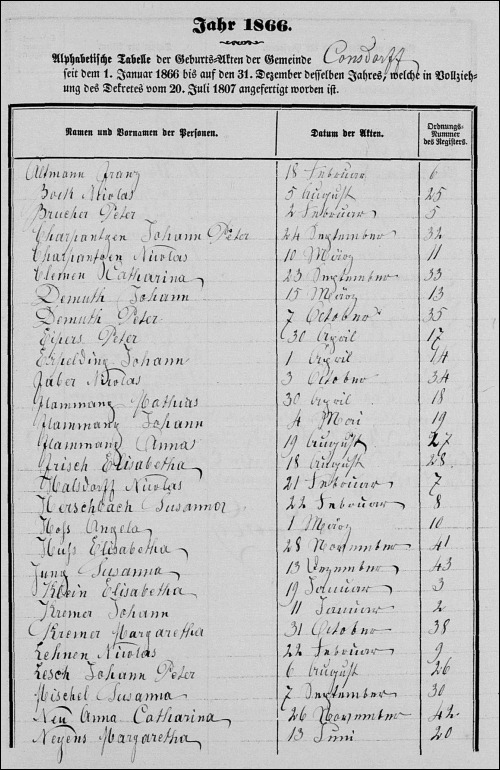 Jahr 1866.
Alphabetische Tabelle der Geburts-Akten der Gemeinde Consdorff
seit dem 1. Januar 1866 bis auf den 31. Dezember desselben Jahres, welche in Vollzieh-
ung des Dekretes vom 20. Juli 1807 angefertigt worden ist.
Namen und Vornamen der Personen. Datum der Akten. Ordnungs-
Nummer
des Registers.
Altmann Franz 18 Februar 6
Bock Nicolas 5 August 25
Brucher Peter 2 Februar 5
Charpantgen Johann Peter 24 September 32
Charpantgen Nicolas 10 März 11
Clemen Katharina 23 September 33
Demuth Johann 15 März 13
Demuth Peter 7 October 35
Eipers Peter 30 April 17
Erpelding Johann 1 April 14
Faber Nicolas 3 October 34
Flammang Mathias 30 April 18
Flammang Johann 4 Mai 19
Flammang Anna 19 August 27
Frisch Elisabetha 18 August 28
Halsdorff Nicolas 21 Februar 7
Herschbach Susanna 22 Februar 8
Hoss Angela 1 März 10
Huss Elisabetha 28 November 41
Jung Susanna 13 Dezember 43
Klein Elisabetha 19 Januar 3
Kremer Johann 11 Januar 2
Kremer Margaretha 31 October 38
Lehnen Nicolas 22 Februar 9
Lesch Johann Peter 6 August 26
Mischel Susanna 7 September 30
Neu Anna Catharina 26 November 42
Neyens Margaretha 13 Juni 20